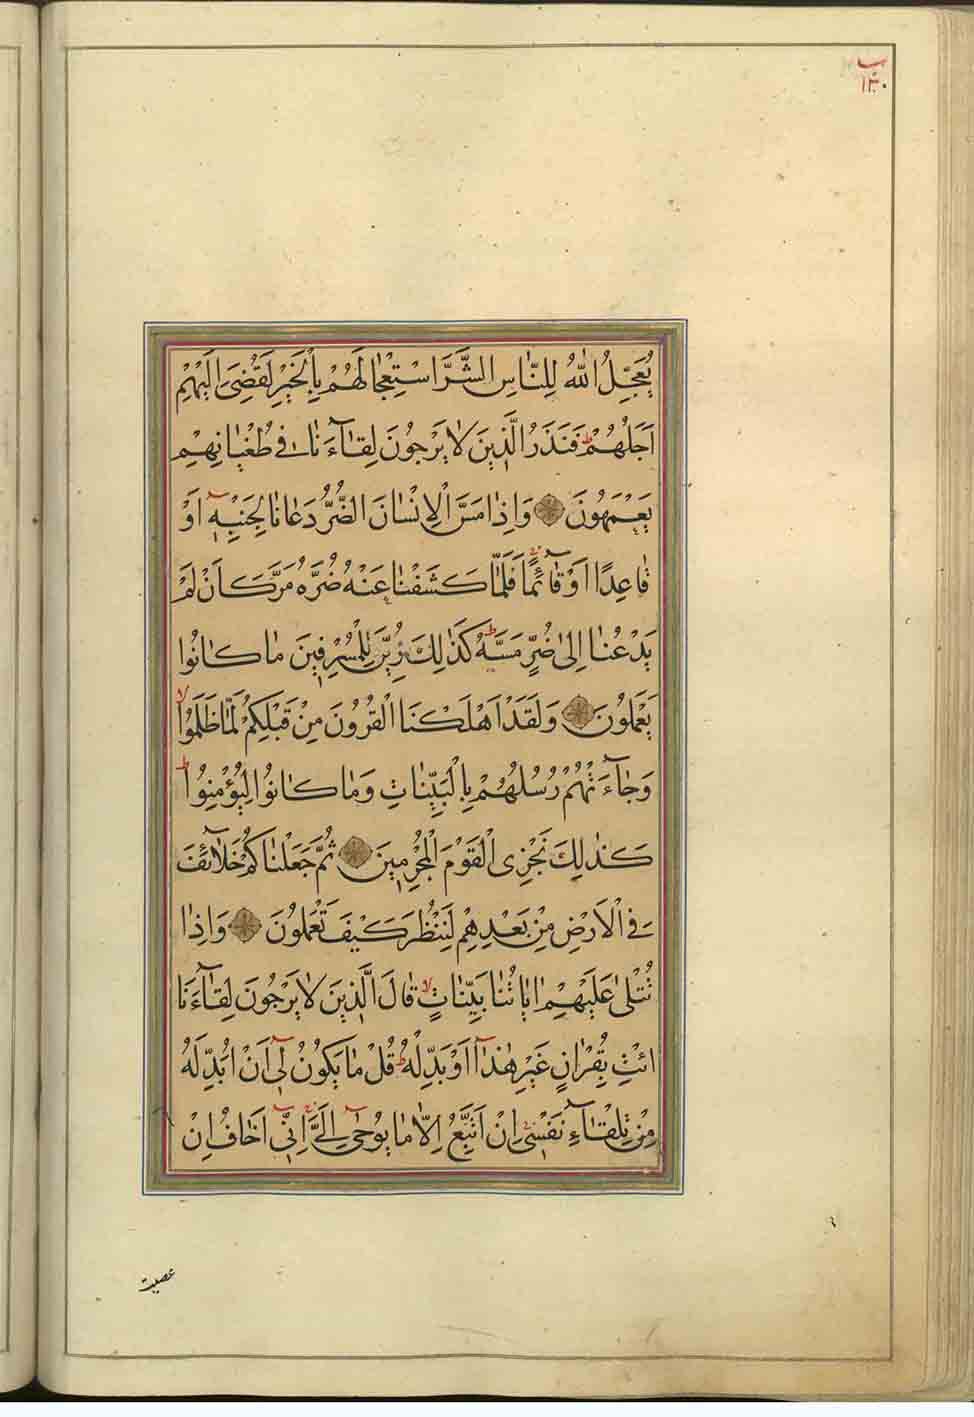 ب
۱۳۰
يُعَجِّلُ اللّٰهُ لِلنَّاسِ الشَّرَّ اسْتِعْجٰالَهُمْ بِالْخَيْرِ لَقُضِىَ اِلَيْهِمْ
اَجَلُهُمْ ط فَنَذَرُ الَّذِينَ لٰا يَرْجُونَ لِقٰآءَنٰا فِى طُغْيٰانِهِمْ
يَعْمَهُونَ وَاِذٰا مَسَّ الْاِنْسٰانَ الضُّرُّ دَعٰانٰا لِجَنْبِهِٓ اَوْ
قٰاعِدًا اَوْ قٰٓائِمًا ج فَلَمّٰا كَشَفْنٰا عَنْهُ ضُرَّهُ مَرَّ كَاَنْ لَمْ
يَدْعُنٰا اِلىٰ ضُرٍّ مَسَّهُ ط كَذٰلِكَ زُيِّنَ لِلْمُسْرِفِينَ مٰا كٰانُوا
يَعْمَلُونَ وَلَقَدْ اَهْلَكْنَا الْقُرُونَ مِنْ قَبْلِكُمْ لَمّٰا ظَلَمُوا لا
وَجٰٓاءَتْهُمْ رُسُلُهُمْ بِالْبَيِّنٰاتِ وَمٰا كٰانُوا لِيُؤْمِنُوا ط
كَذٰلِكَ نَجْزِى الْقَوْمَ الْمُجْرِمِينَ ثُمَّ جَعَلْنٰاكُمْ خَلٰٓائِفَ
فِى الْاَرْضِ مِنْ بَعْدِهِمْ لِنَنْظُرَ كَيْفَ تَعْمَلُونَ وَاِذٰا
تُتْلىٰ عَلَيْهِمْ اٰيٰاتُنٰا بَيِّنٰاتٍ لا قٰالَ الَّذِينَ لٰا يَرْجُونَ لِقٰآءَنَا
ائْتِ بِقُرْاٰنٍ غَيْرِ هٰذٰٓا اَوْ بَدِّلْهُ ط قُلْ مٰا يَكُونُ لِٓى اَنْ اُبَدِّلَهُ
مِنْ تِلْقٰٓاءِ نَفْسِى ج اِنْ اَتَّبِعُ اِلّٰا مٰا يُوحىٰٓ اِلَىَّ ج اِنِّٓى اَخٰافُ اِنْ
عصیت